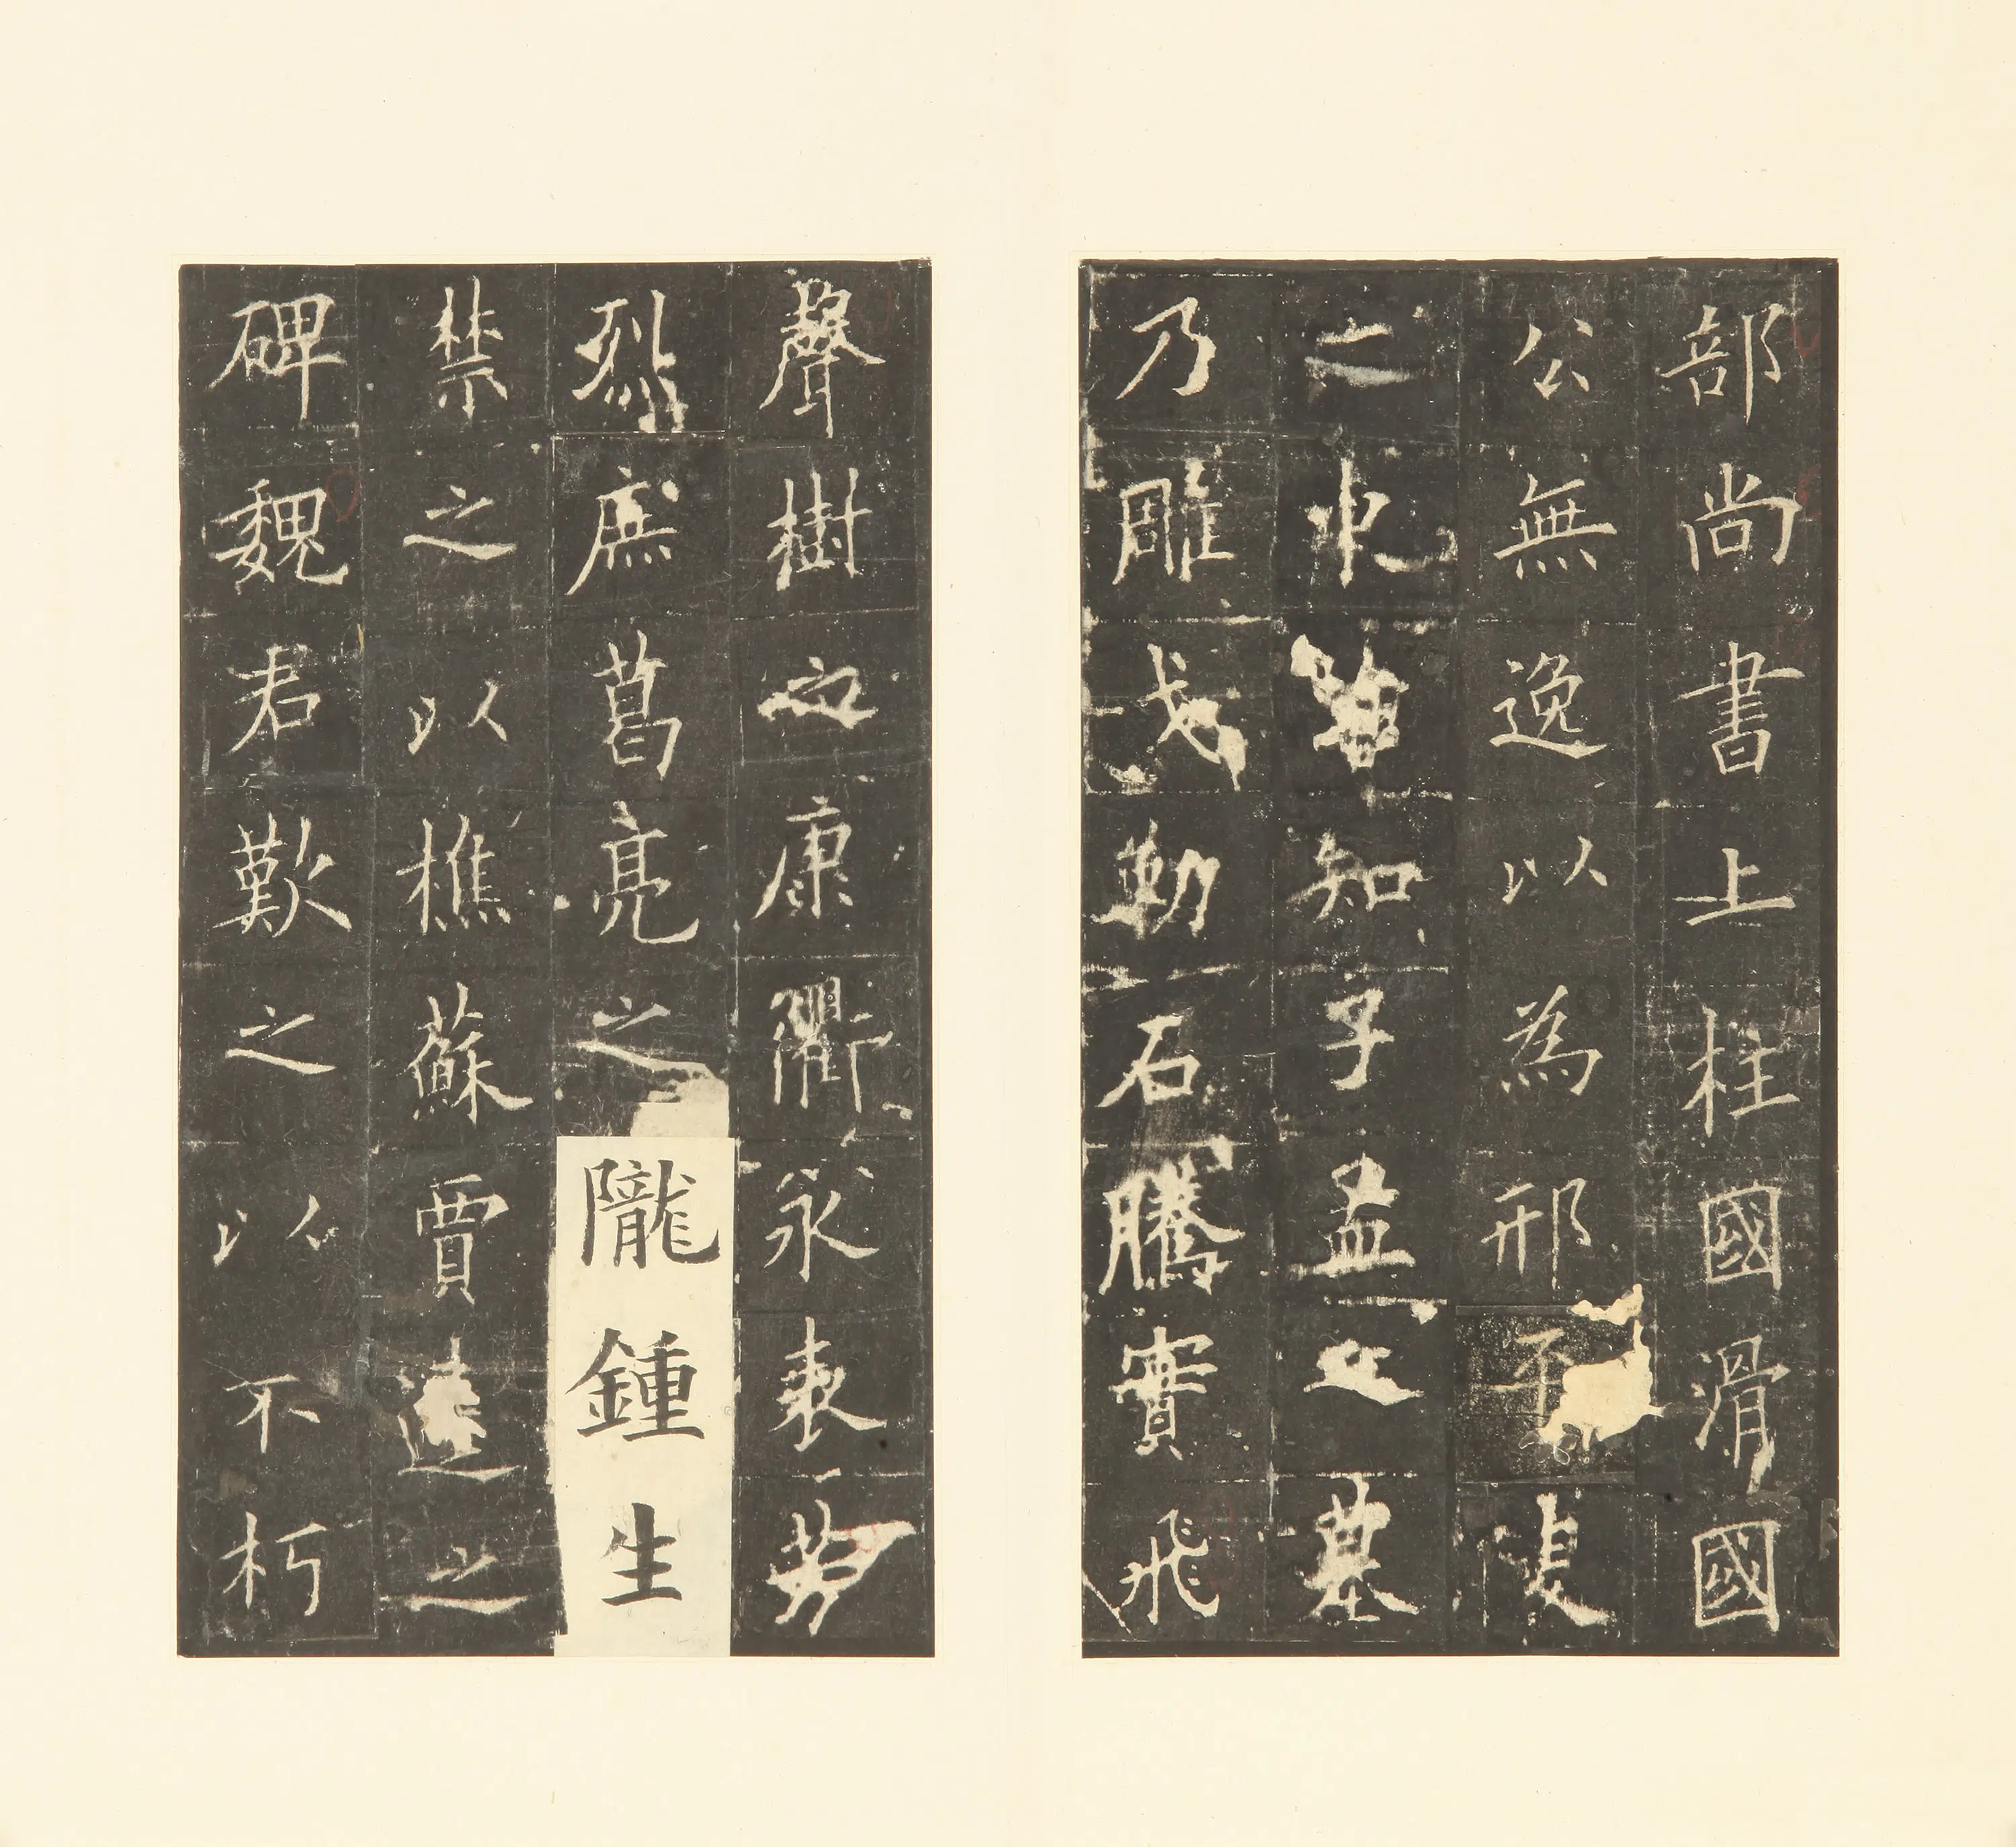 部尚書上柱國滑國
公無逸以為邢平陵
之東誰知子孟之墓
乃雕戈勒石騰實飛
聲樹之康衢永表芳
烈庶葛亮之隴鍾生
禁之以樵蘇賈逵之
碑魏君歎之以不朽